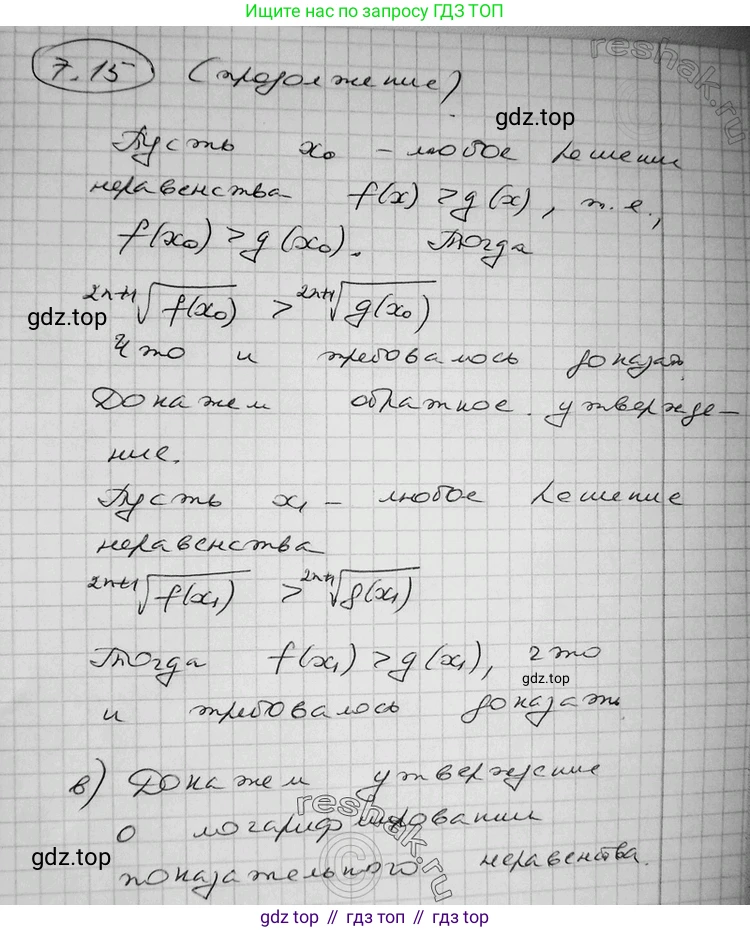 Ищите нас по запросу ГДЗ ТОП
7.15 (продолжение)
reshak.ru
gdz.top
Пусть x₀ – любое решение
неравенства f(x) > g(x), т.е.,
f(x₀) > g(x₀). Тогда
²ⁿ⁺¹√f(x₀) > ²ⁿ⁺¹√g(x₀)
gdz.top
Что и требовалось доказать.
Докажем обратное утвержде-
ние.
Пусть x₁ – любое решение
неравенства
²ⁿ⁺¹√f(x₁) > ²ⁿ⁺¹√g(x₁)
Тогда f(x₁) > g(x₁), что
gdz.top
и требовалось доказать.
в) Докажем утверждение
reshak.ru
о логарифмировании
gdz.top
показательного неравенства.
gdz top // гдз топ // gdz top